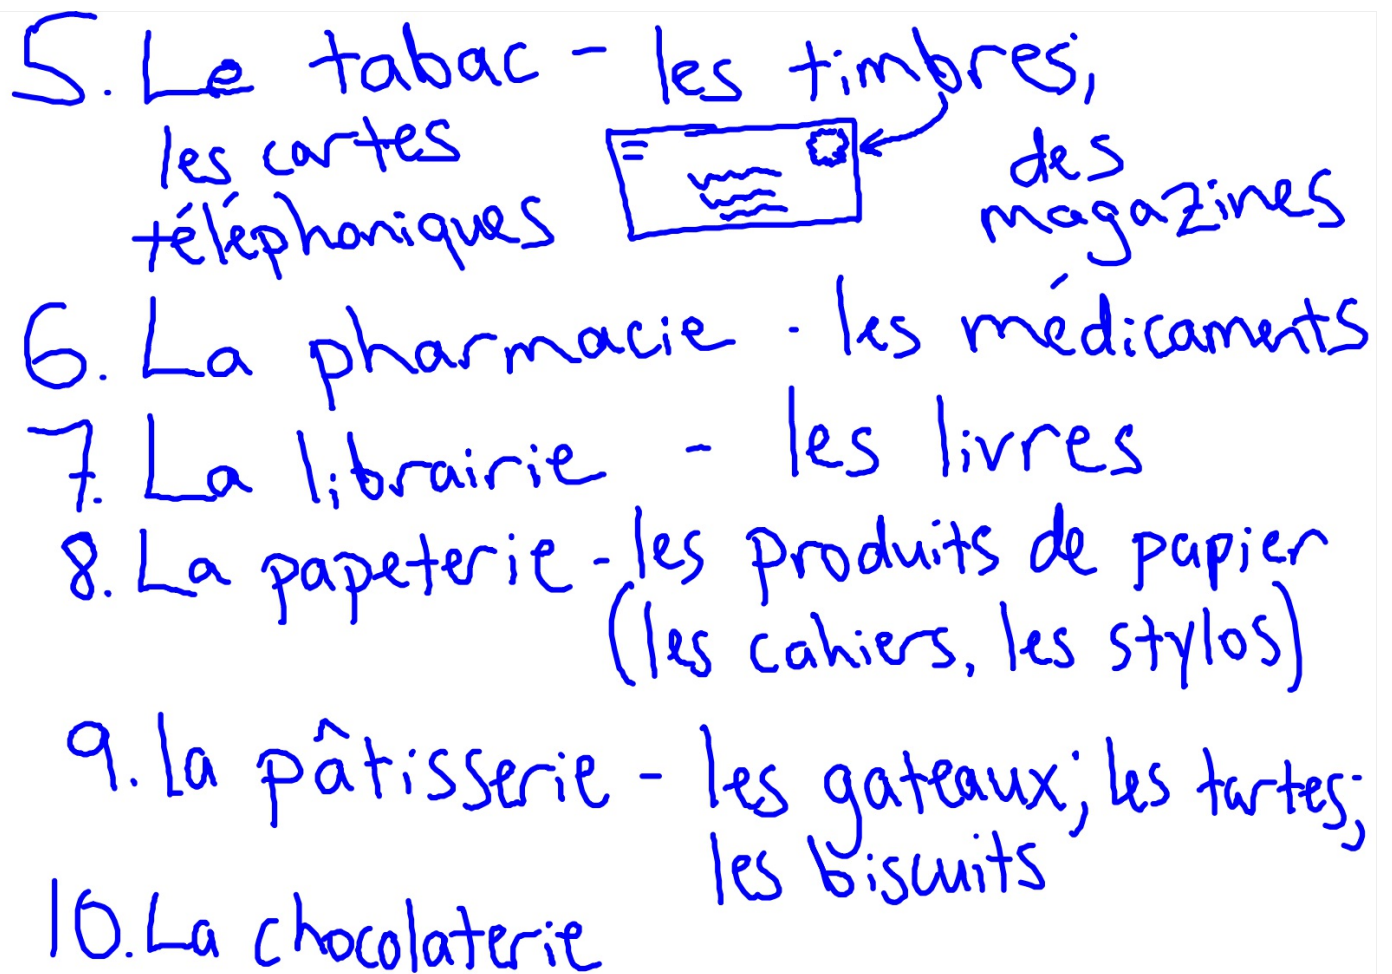 5. Le tabac - les timbres,
les cartes
téléphoniques
des
magazines
6. La pharmacie - les médicaments
7. La librairie - les livres
8. La papeterie - les produits de papier
(les cahiers, les stylos)
9. la pâtisserie - les gateaux; les tartes;
les biscuits
10. La chocolaterie